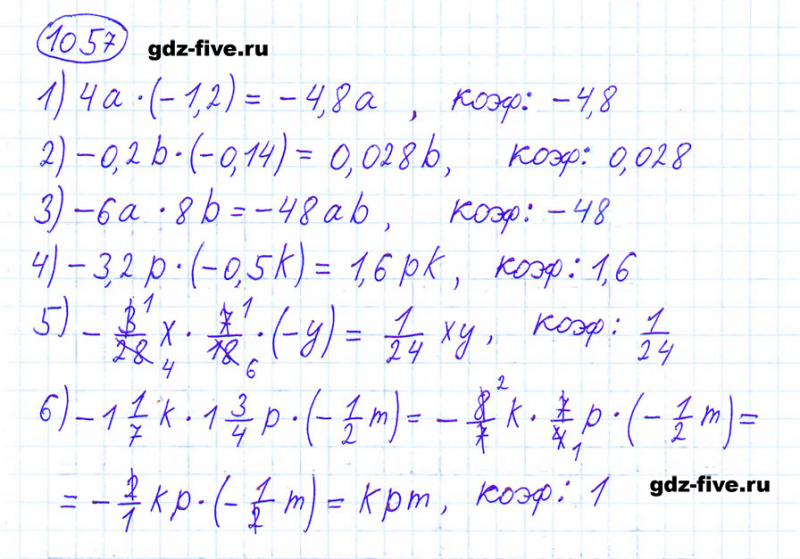 1057 gdz-five.ru
1) 4a · (-1,2) = -4,8a , коэф: -4,8
2) -0,2b · (-0,14) = 0,028b, коэф: 0,028
3) -6a · 8b = -48ab, коэф: -48
4) -3,2p · (-0,5k) = 1,6pk, коэф: 1,6
5) - 3 1/28 4 x · 7 1/18 6 · (-y) = 1/24 xy, коэф: 1/24
6) -1 1/7 k · 1 3/4 p · (-1/2 m) = - 8 2/7 k · 7/4 1 p · (-1/2 m) =
= - 2/1 kp · (-1/2 m) = kpm, коэф: 1 gdz-five.ru